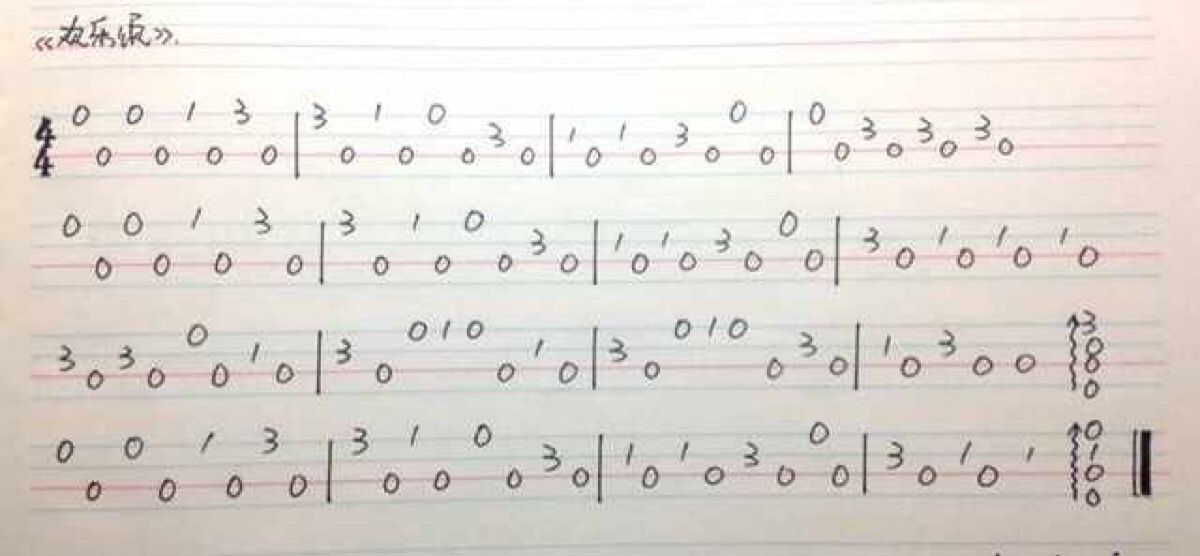 《欢乐颂》.
4/4 0 0 0 0 1 0 3 0 | 3 0 1 0 0 0 3 0 | 1 0 1 0 3 0 0 0 | 0 0 3 0 3 0 3 0
0 0 0 0 1 0 3 0 | 3 0 1 0 0 0 3 0 | 1 0 1 0 3 0 0 0 | 3 0 1 0 1 0 1 0
3 0 3 0 0 0 1 0 | 3 0 0 1 0 0 1 0 | 3 0 0 1 0 0 3 0 | 1 0 3 0 0 3 0 0 0
0 0 0 0 1 0 3 0 | 3 0 1 0 0 0 3 0 | 1 0 1 0 3 0 0 0 | 3 0 1 0 1 0 1 0 0